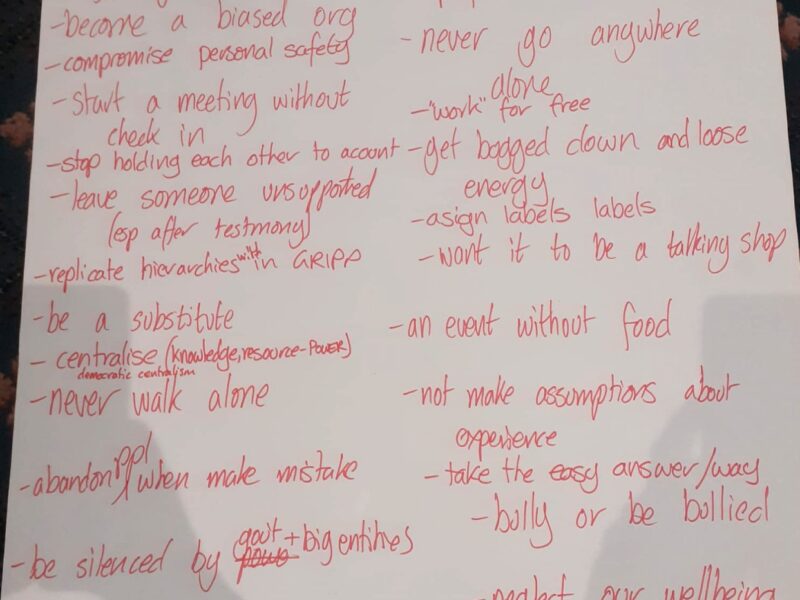 -become a biased org
-compromise personal safety
-start a meeting without
check in
-stop holding each other to acount
-leave someone unsupported
(esp after testmony)
-replicate hierarchies within GRIPP
-be a substitute
-centralise (knowledge, resource-POWER)
democratic centralism
-never walk alone
-abandon ppl when make mistake
-be silenced by govt + big entities
-never go angwhere
alone
-"work" for free
-get bogged down and loose
energy
-asign labels labels
-wont it to be a talking shop
-an event without food
-not make assumptions about
experience
-take the easy answer/way
-bully or be bullied
-neglect our wellbeing